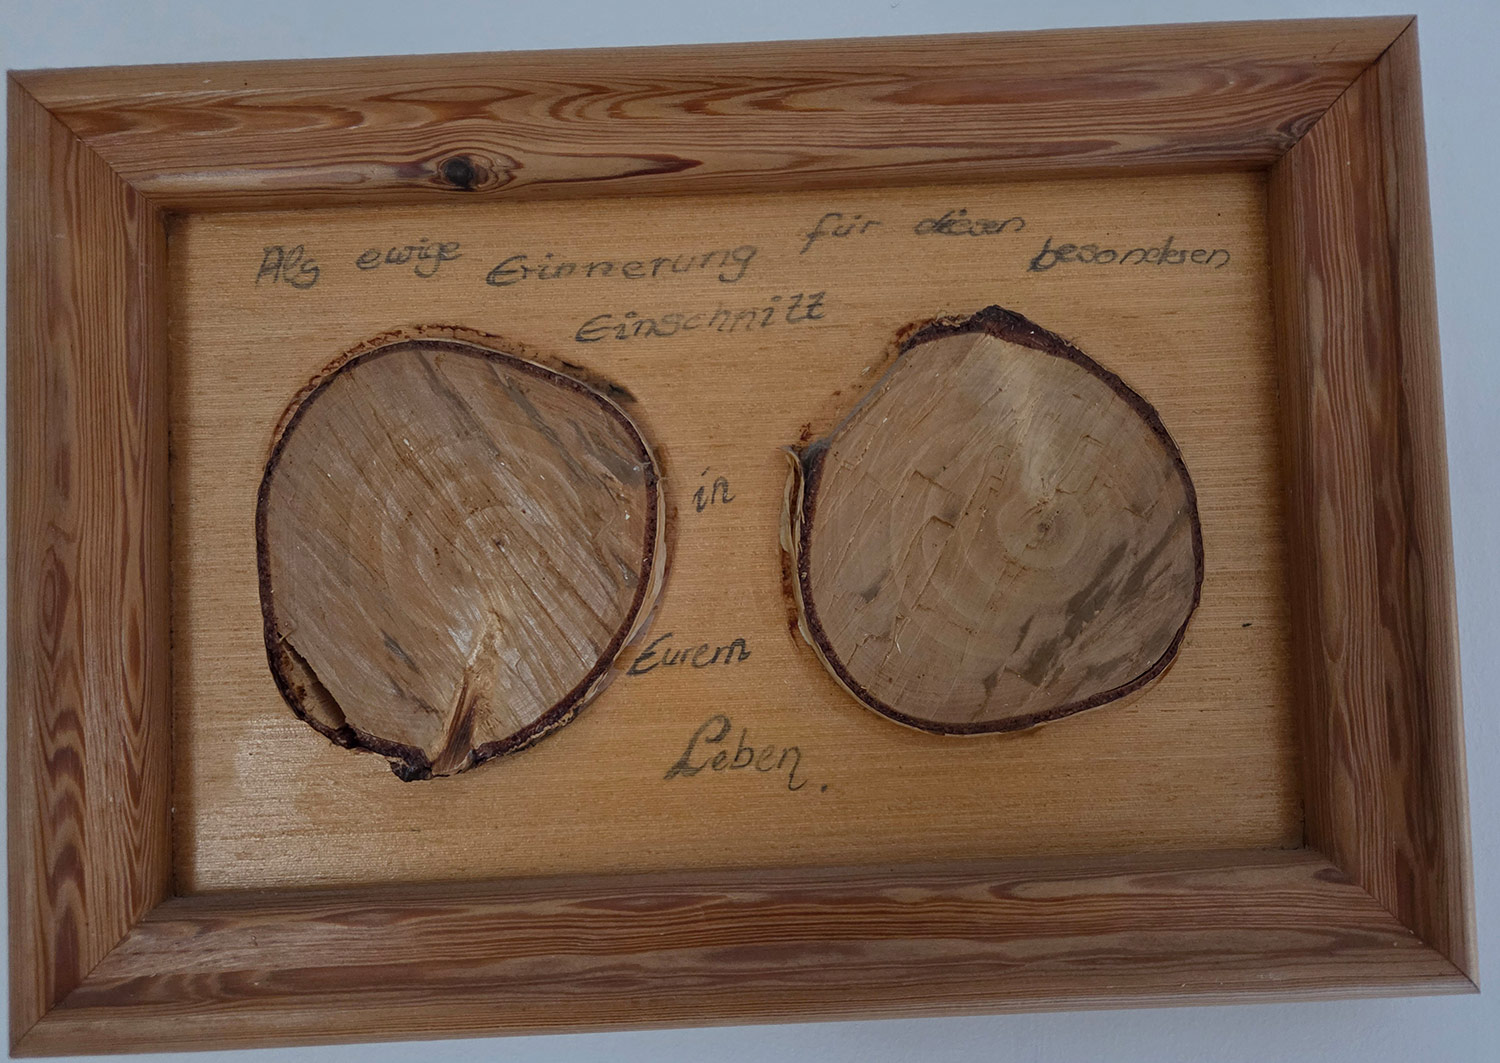 Als ewige Erinnerung für diesen besonderen
Einschnitt
in
Eurem
Leben.